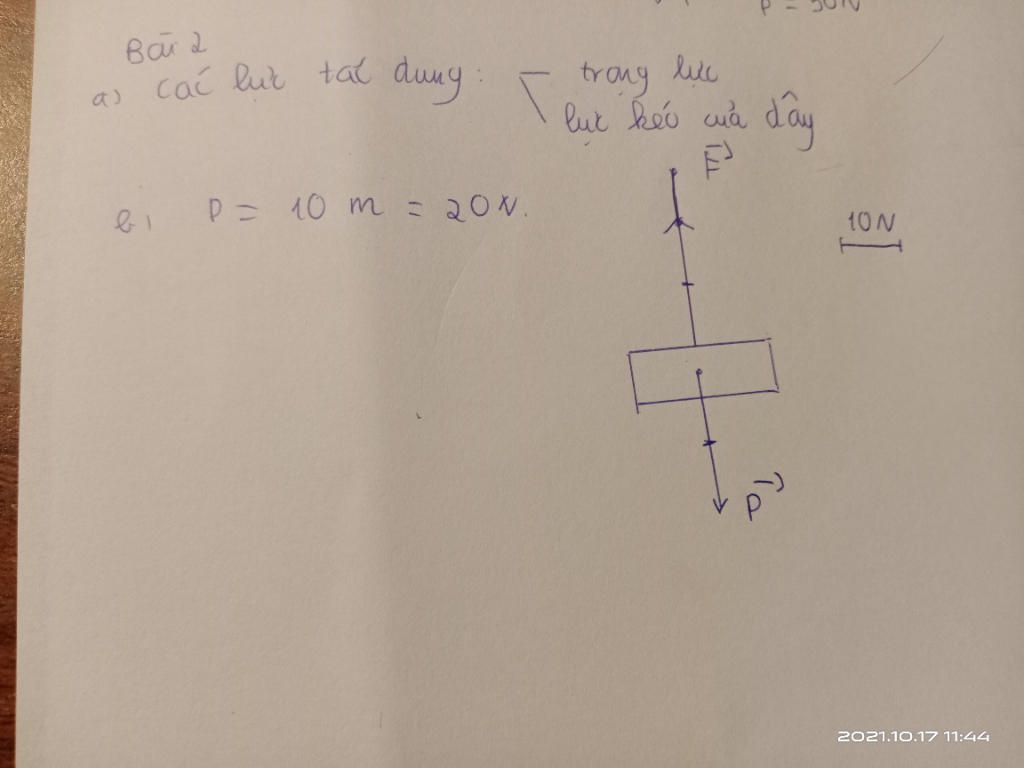 P = 30N
Bài 2
a) Các lực tác dụng: trọng lực
lực kéo của dây
F
10N
b, P = 10 m = 20N.
P
2021.10.17 11:44